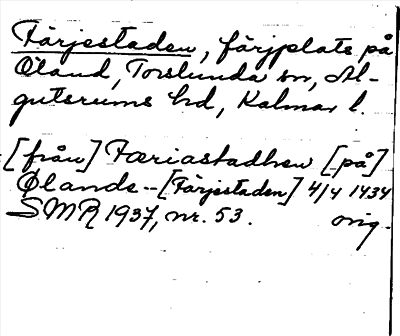 Färjestaden, färjplats på
Öland, Torslunda sn, Al-
gutsrums hd, Kalmar l.
[från] Færiastadhen [på]
Ølands -- [Färjestaden] 4/4 1434
SMR 1937, nr. 53. orig.